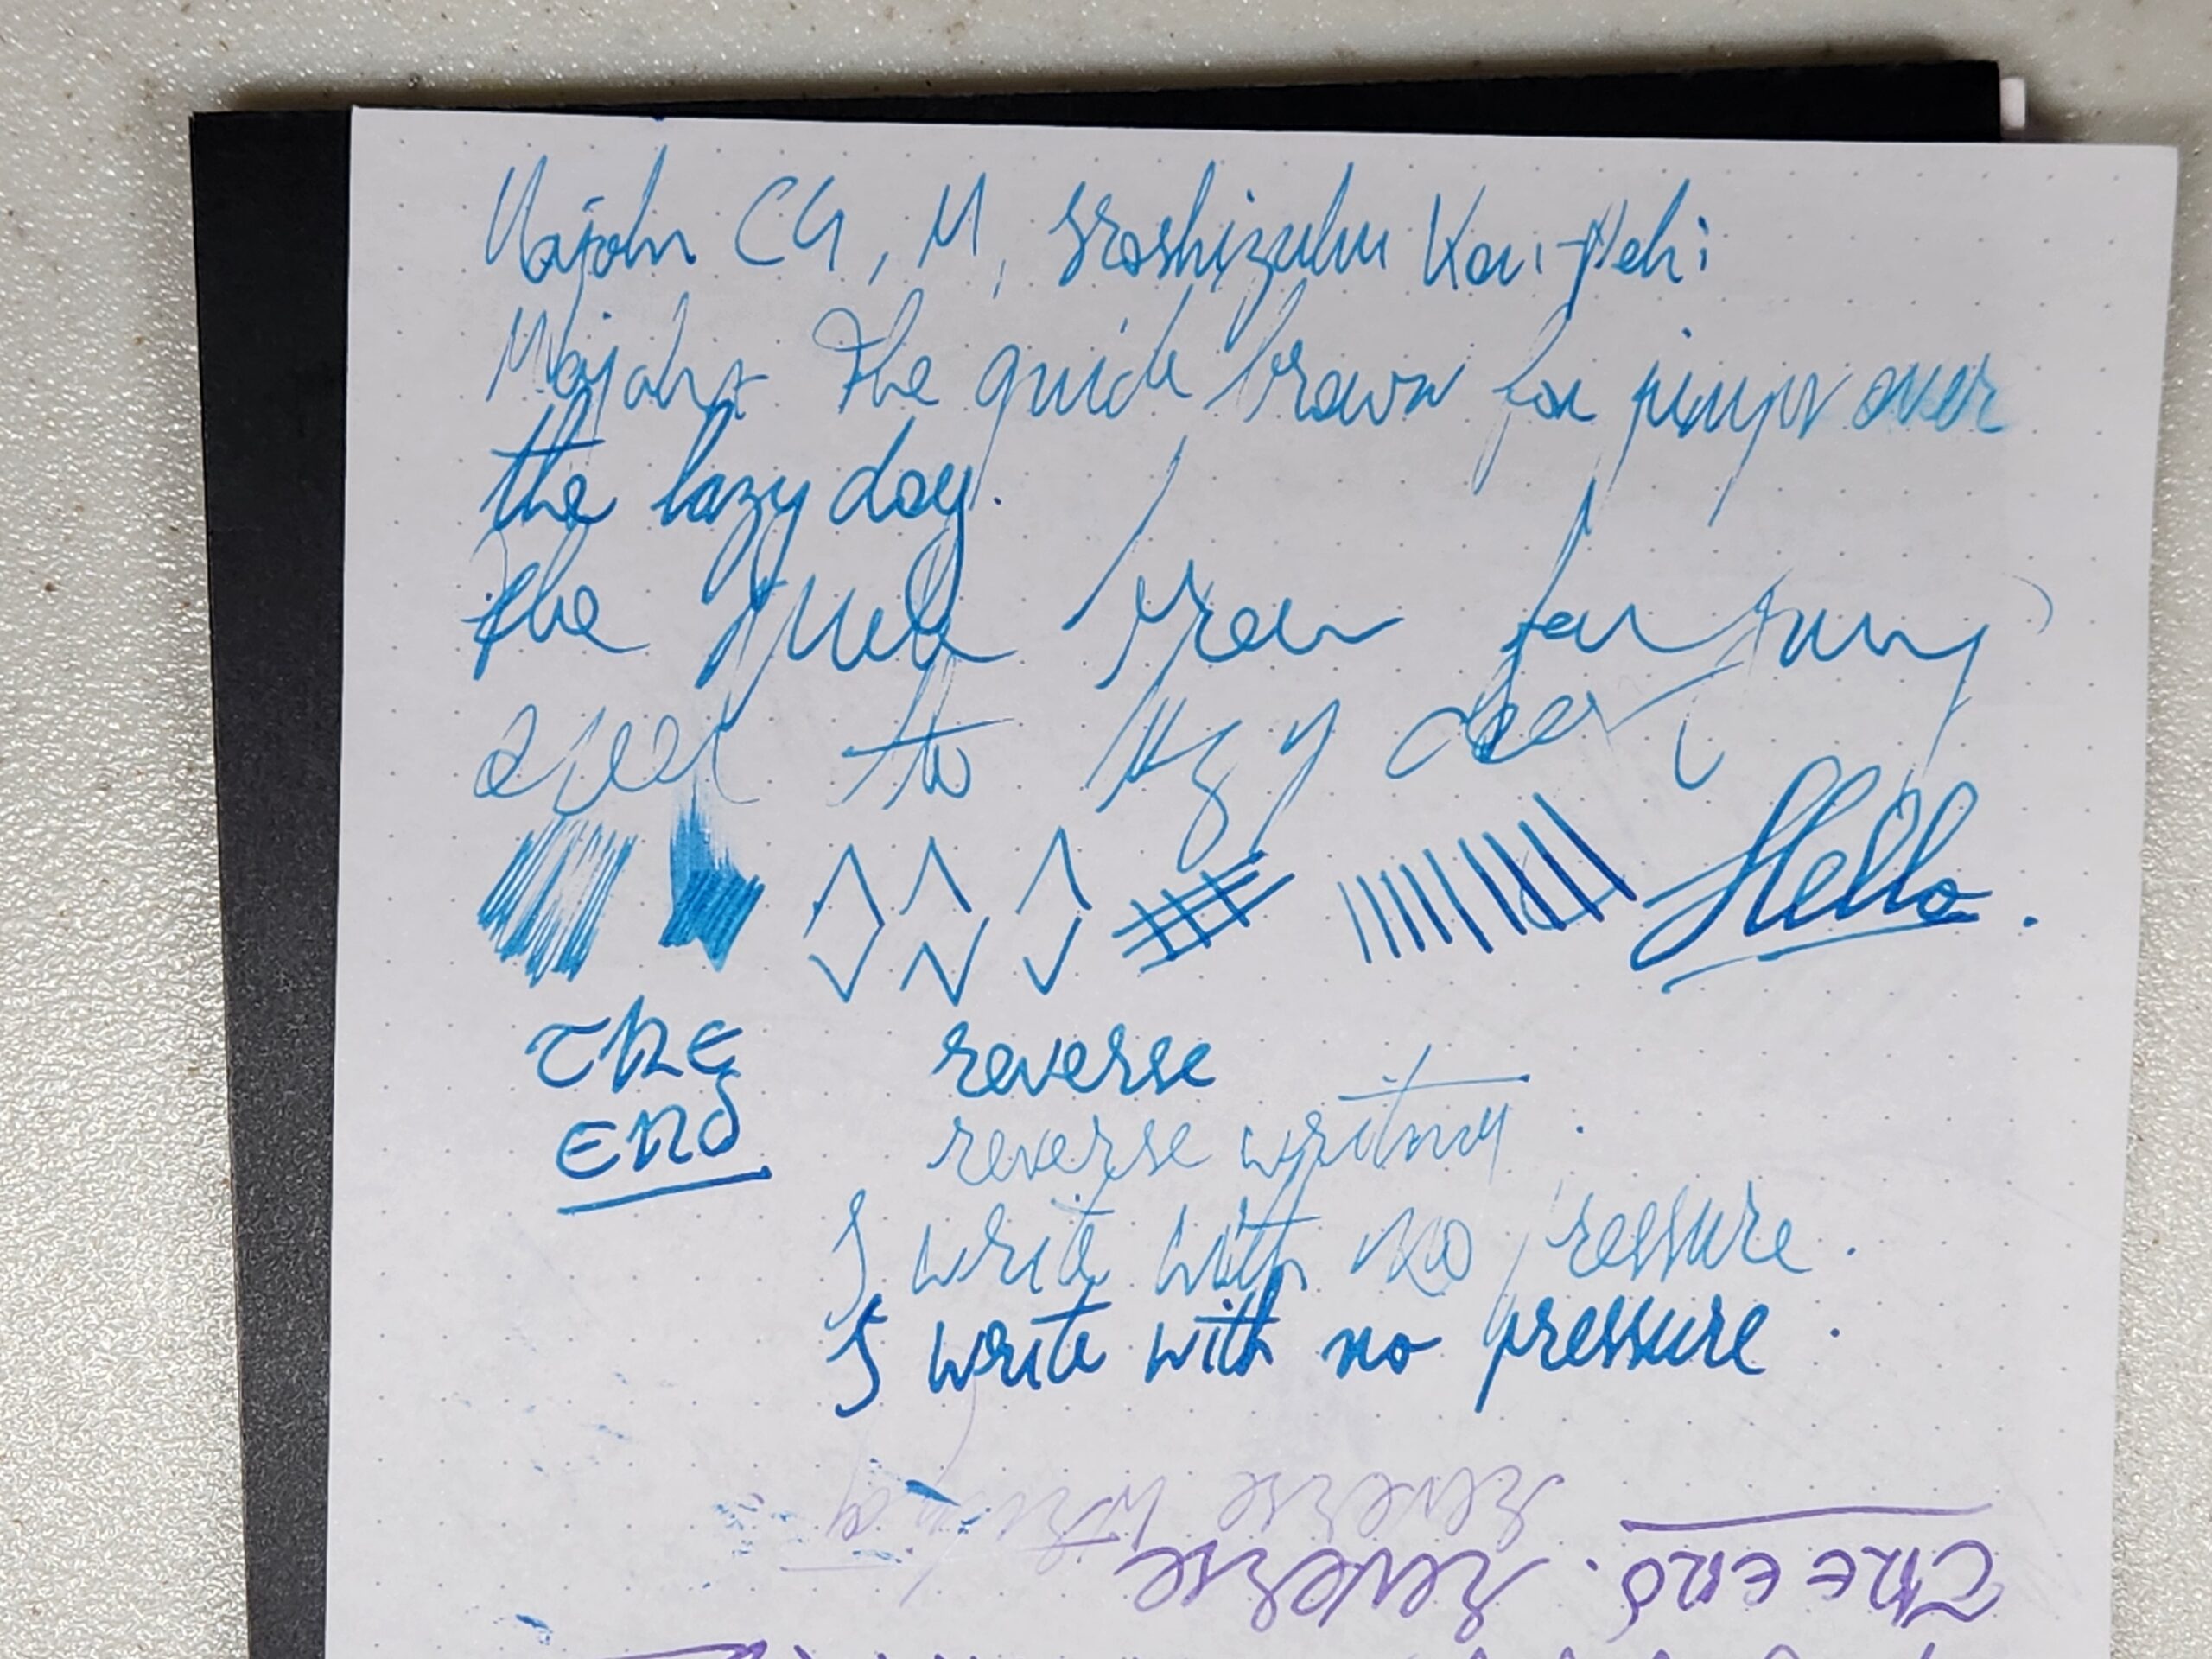 Majohn C4, M, Iroshizuku Kon-Peki
Majohn The quick brown fox jumps over
the lazy dog.
the quick brown fox jump
over the lazy dog
Hello.
THE
END
reverse
reverse writing.
I write with no pressure.
I write with no pressure.
reverse writing
THE END. reverse